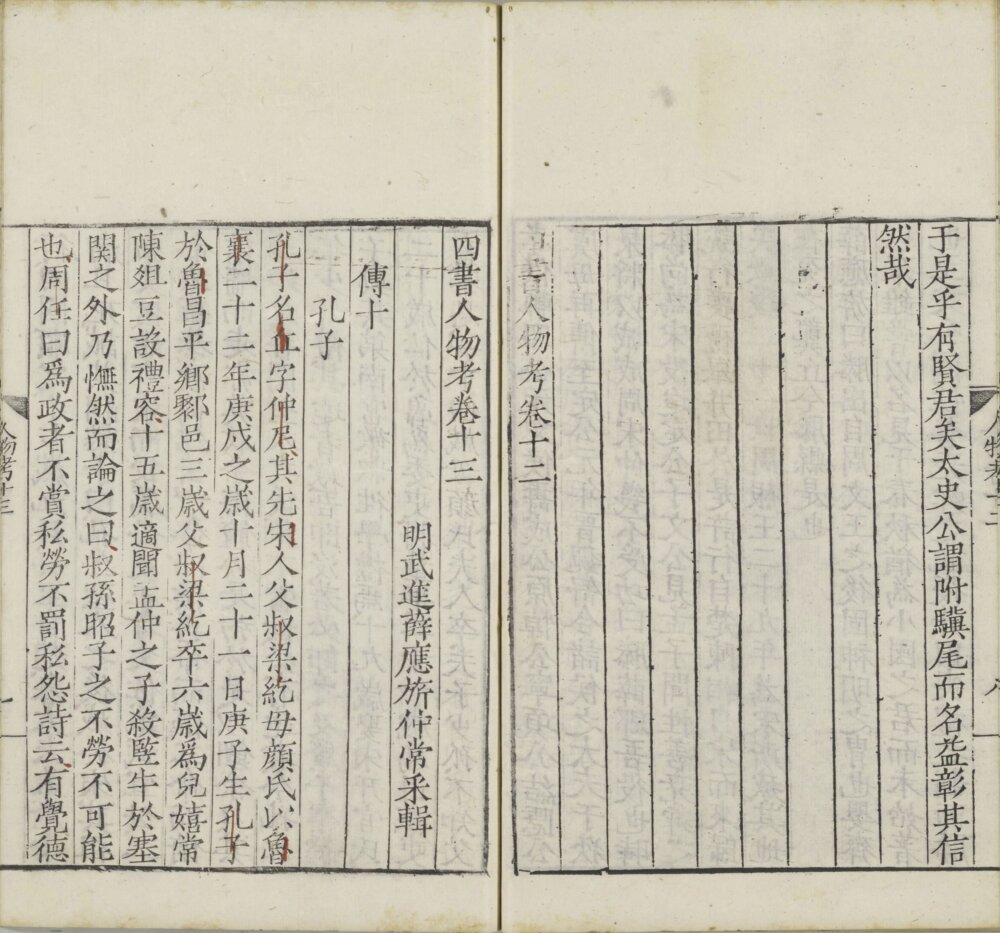 于是乎有賢君矣太史公謂附驥尾而名益彰其信
然哉
四書人物考卷十二
人物考十二
八
四書人物考卷十三
明武進薛應旂仲常采輯
傳十
孔子
孔子名丘字仲尼其先宋人父叔梁紇母顏氏以魯
襄二十二年庚戌之歲十月二十一日庚子生孔子
於魯昌平鄉鄹邑三歲父叔梁紇卒六歲爲兒嬉常
陳俎豆設禮容十五歲適聞孟仲之子殺豎牛於塞
関之外乃憮然而論之曰叔孫昭子之不勞不可能
也周任曰爲政者不賞私勞不罰私怨詩云有覺德
人物考十三
一